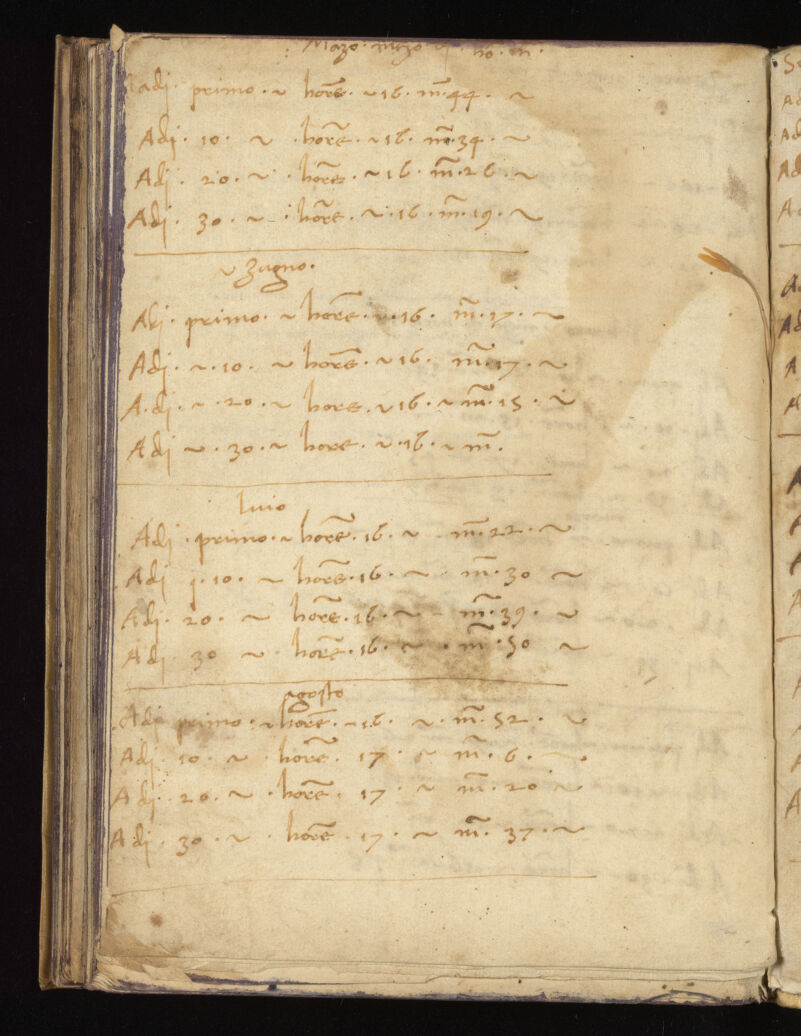 Mazo
adj. primo. ~ hore. ~ 16. m. 44. ~
Adj. 10. ~ . hore. ~ 16. m. 34. ~
Adj. 20. ~ . hore. ~ 16. m. 26. ~
Adj. 30. ~ . hore. ~ . 16. m. 19. ~
~ zugno.
Adj. primo. ~ hore. ~ . 16. m. 17. ~
Adj. ~ . 10. ~ hore. ~ 16. m. 17. ~
A. dj. ~ . 20. ~ hore. ~ 16. ~ m. 15. ~
Adj ~ . 30. ~ hore. ~ . 16. ~ m.
luio
Adj . primo. ~ hore. 16. ~ . m. 22. ~
Adj j. 10. ~ hore. 16. ~ . m. 30 ~
Adj. 20. ~ hore. 16. ~ . m. 39. ~
Adj. 30 ~ . hore. 16. ~ . m. 50 ~
agosto
Adj primo. ~ hore. ~ 16. ~ . m. 52. ~
Adj. 10. ~ . hore. 17. ~ m. 6. ~
Adj. 20. ~ . hore. 17. ~ m. 20 ~
Adj. 30. ~ . hore. 17. ~ m. 37. ~